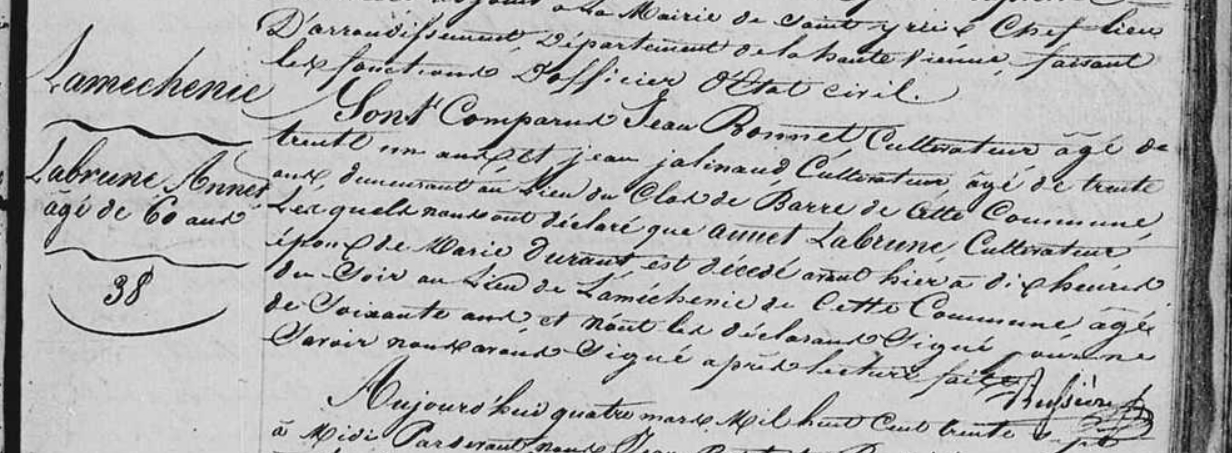 Lamechenie
Labrune Annet
âgé de 60 ans
38
adjoint à la Mairie de Saint yrieix Chef lieu
D'arrondissement, Département de la haute vienne, faisant
les fonctions D'officier D'Etat civil.
Sont Comparus Jean Bonnet, Cultivateur âgé de
trente un ans, et jean jalinaud, Cultivateur, âgé de trente
ans, demeurant au Lieu du Clos de Barre de Cette Commune,
Lesquels nous ont déclaré que annet Labrune, Cultivateur
époux de Marie Durant, est décédé avant hier à dix heures
du Soir au Lieu de Laméchenie de Cette Commune âgé
de Soixante ans, et n'ont les déclarans Signé pour ne
Savoir nous avons Signé après lecture faite
Aujourd'hui quatre mars Mil huit Cent trente sept
à Midi Pardevant nous Jean